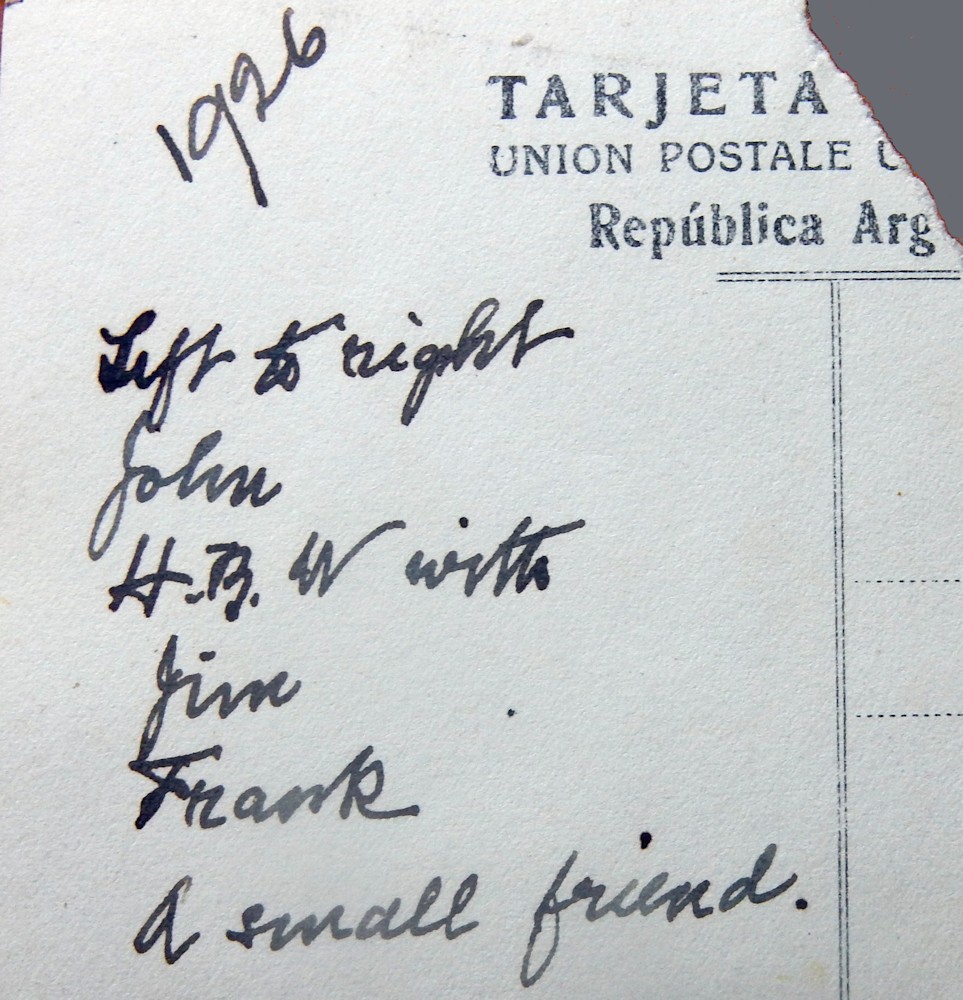 1926
TARJETA
UNION POSTALE U
República Arg
Left to right
John
H.B. W with
Jim
Frank
A small friend.